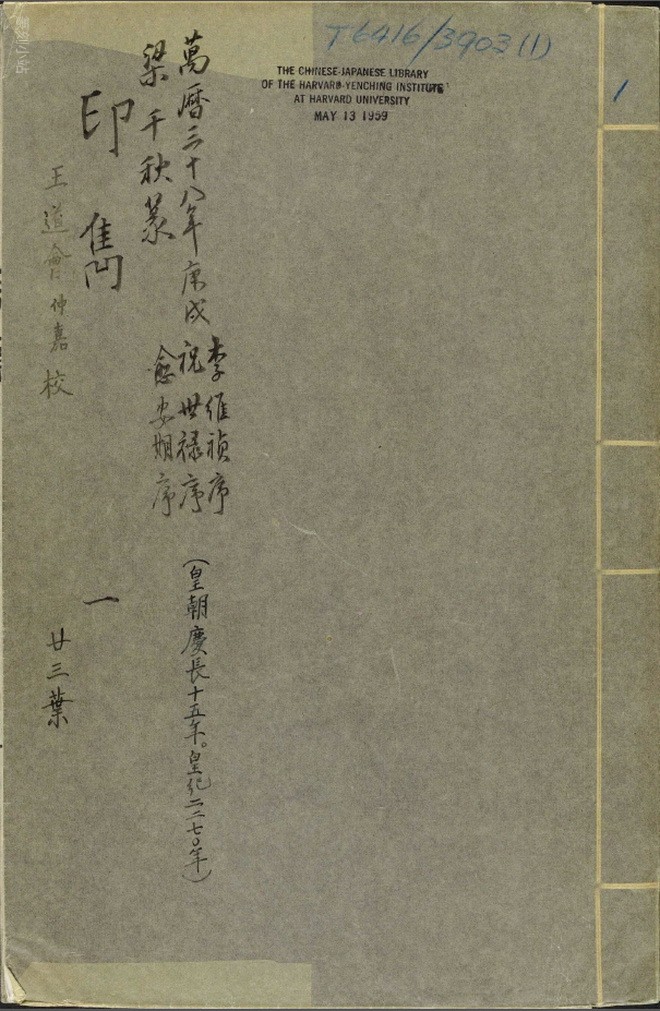 篆刻小站
T6416/3903(1)
1
THE CHINESE-JAPANESE LIBRARY
OF THE HARVARD-YENCHING INSTITUTE
AT HARVARD UNIVERSITY
MAY 13 1959
李維禎序
萬曆三十八年庚戌 祝世禄序
(皇朝慶長十五年。皇紀二二七〇年)
梁千秋篆 愈安期序
印雋 一
王道會仲嘉校 廿三葉